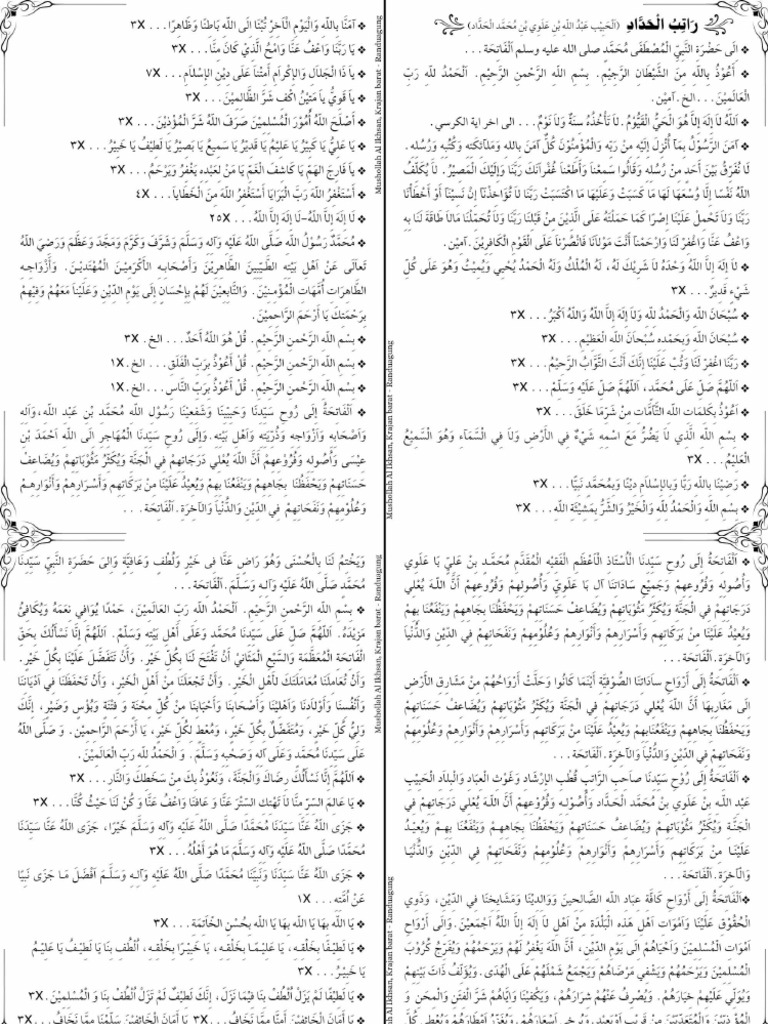 رَاتِبُ الْحَدَّادِ (اَلْحَبِيْب عَبْدُ اللهِ بْنِ عَلَوِي بْنِ مُحَمَّد الْحَدَّاد)
❖ الى حَضْرَةِ النَّبِيِّ الْمُصْطَفَى مُحَمَّد صلى الله عليه وسلم اَلْفَاتِحَةُ...
❖ أَعُوْذُ بِاللهِ مِنَ الشَّيْطَانِ الرَّجِيْمِ. بِسْمِ اللهِ الرَّحْمنِ الرَّحِيْمِ. اَلْحَمْدُ للهِ رَبِّ
الْعَالَمِيْنَ... الخ. آمِيْن.
❖ اَللهُ لاَ إِلَهَ إِلاَّ هُوَ الْحَيُّ الْقَيُّوْمُ. لاَ تَأْخُذُهُ سِنَةٌ وَلاَ نَوْمٌ... الى اخر اية الكرسي.
❖ آمَنَ الرَّسُوْلُ بِمَا أُنْزِلَ إِلَيْهِ مِنْ رَبِّهِ وَالْمُؤْمِنُوْنَ كُلٌّ آمَنَ بِاللهِ وَمَلاَئِكَتِهِ وَكُتُبِهِ وَرُسُلِهِ.
لاَ نُفَرِّقُ بَيْنَ أَحَدٍ مِنْ رُسُلِهِ وَقَالُوا سَمِعْنَا وَأَطَعْنَا غُفْرَانَكَ رَبَّنَا وَإِلَيْكَ الْمَصِيْرُ. لاَ يُكَلِّفُ
اللهُ نَفْسًا إِلَّا وُسْعَهَا لَهَا مَا كَسَبَتْ وَعَلَيْهَا مَا اكْتَسَبَتْ رَبَّنَا لَا تُؤَاخِذْنَا إِنْ نَسِيْنَا أَوْ أَخْطَأْنَا
رَبَّنَا وَلَا تَحْمِلْ عَلَيْنَا إِصْرًا كَمَا حَمَلْتَهُ عَلَى الَّذِيْنَ مِنْ قَبْلِنَا رَبَّنَا وَلَا تُحَمِّلْنَا مَالاَ طَاقَةَ لَنَا بِهِ
وَاعْفُ عَنَّا وَاغْفِرْ لَنَا وَارْحَمْنَا أَنْتَ مَوْلَانَا فَانْصُرْنَا عَلَى الْقَوْمِ الْكَافِرِيْنَ. آمِيْن.
❖ لاَ إِلَهَ إِلاَّ اللهُ وَحْدَهُ لاَ شَرِيْكَ لَهُ، لَهُ الْمُلْكُ وَلَهُ الْحَمْدُ يُحْيِي وَيُمِيْتُ وَهُوَ عَلَى كُلِّ
شَيْءٍ قَدِيْرٌ... ٣X
❖ سُبْحَانَ اللهِ وَالْحَمْدُ للهِ وَلاَ إِلَهَ إِلاَّ اللهُ وَاللهُ اَكْبَرُ... ٣X
❖ سُبْحَانَ اللهِ وَبِحَمْدِهِ سُبْحَانَ اللهِ الْعَظِيْمِ... ٣X
❖ رَبَّنَا اغْفِرْ لَنَا وَتُبْ عَلَيْنَا إِنَّكَ أَنْتَ التَّوَّابُ الرَّحِيْمُ... ٣X
❖ اَللَّهُمَّ صَلِّ عَلَى مُحَمَّد، اَللَّهُمَّ صَلِّ عَلَيْهِ وَسَلِّمْ... ٣X
❖ أَعُوْذُ بِكَلِمَاتِ اللهِ التَّآمَّاتِ مِنْ شَرِّمَا خَلَقَ... ٣X
❖ بِسْمِ اللهِ الَّذِي لَا يَضُرُّ مَعَ اسْمِهِ شَيْءٌ فِي الأَرْضِ وَلَا فِي السَّمَآءِ وَهُوَ السَّمِيْعُ
الْعَلِيْمُ... ٣X
❖ رَضِيْنَا بِاللهِ رَبًّا وَبِالإِسْلاَمِ دِيْنًا وَبِمُحَمَّدٍ نَبِيًّا... ٣X
❖ بِسْمِ اللهِ وَالْحَمْدُ للهِ وَالْخَيْرُ وَالشَّرُّ بِمَشِيْئَةِ اللهِ... ٣X
Mushollah Al Ikhsan, Krajan barat - Randuagung
❖ آمَنَّا بِاللهِ وَالْيَوْمِ الْآخِرِ تُبْنَا الَى اللهِ بَاطِنًا وَظَاهِرًا... ٣X
❖ يَا رَبَّنَا وَاعْفُ عَنَّا وَامْحُ الَّذِي كَانَ مِنَّا... ٣X
❖ ياَ ذَا الْجَلَالِ وَالإِكْرَامِ أَمِتْنَا عَلَى دِيْنِ الإِسْلاَمِ... ٧X
❖ ياَ قَوِيُّ ياَ مَتِيْنُ اكْفِ شَرَّ الظَّالِمِيْنَ... ٣X
❖ أَصْلَحَ اللهُ أُمُوْرَ الْمُسْلِمِيْنَ صَرَفَ اللهُ شَرَّ الْمُؤْذِيْنَ... ٣X
❖ يَا عَلِيُّ يَا كَبِيْرُ يَا عَلِيْمُ يَا قَدِيْرُ يَا سَمِيْعُ يَا بَصِيْرُ يَا لَطِيْفُ يَا خَبِيْرُ... ٣X
❖ يَا فَارِجَ الهَمِّ يَا كَاشِفَ الْغَمِّ يَا مَنْ لِعَبْدِهِ يَغْفِرُ وَيَرْحَمُ... ٣X
❖ أَسْتَغْفِرُ اللهَ رَبَّ الْبَرَايَا أَسْتَغْفِرُ اللهَ مِنَ الْخَطَايَا... ٤X
❖ لَا إِلَهَ إِلاَّ اللهُ-لَا إِلَهَ إِلاَّ اللهُ... ٢٥X
❖ مُحَمَّدٌ رَسُوْلُ اللهِ صَلَّى اللهُ عَلَيْهِ وَآلِهِ وَسَلَّمَ وَشَرَّفَ وَكَرَّمَ وَمَجَّدَ وَعَظَّمَ وَرَضِيَ اللهُ
تَعَالَى عَنْ اَهْلِ بَيْتِهِ الطَّيِّبِيْنَ الطَّاهِرِيْنَ وَأَصْحَابِهِ اْلأَكْرَمِيْنَ الْمُهْتَدِيْنَ. وَأَزْوَاجِهِ
الطَّاهِرَاتِ أُمَّهَاتِ الْمُؤْمِنِيْنَ. وَالتَّابِعِيْنَ لَهُمْ بِإِحْسَانٍ إِلَى يَوْمِ الدِّيْنِ وَعَلَيْنَا مَعَهُمْ وَفِيْهِمْ
بِرَحْمَتِكَ يَا أَرْحَمَ الرَّاحِمِيْنَ.
❖ بِسْمِ اللهِ الرَّحْمنِ الرَّحِيْمِ. قُلْ هُوَ اللهُ أَحَدٌ... الخ. ٣X
❖ بِسْمِ اللهِ الرَّحْمنِ الرَّحِيْمِ. قُلْ أَعُوْذُ بِرَبِّ الْفَلَقِ... الخ. ١X
❖ بِسْمِ اللهِ الرَّحْمنِ الرَّحِيْمِ. قُلْ أَعُوْذُ بِرَبِّ النَّاسِ... الخ. ١X
❖ اَلْفَاتِحَةُ إِلَى رُوحِ سَيِّدِنَا وَحَبِيْبِنَا وَشَفِيْعِنَا رَسُوْلِ اللهِ مُحَمَّدِ بْنِ عَبْدِ اللهِ، وَآلِهِ
وَأَصْحَابِهِ وَأَزْوَاجِهِ وَذُرِّيَّتِهِ وَأَهْلِ بَيْتِهِ. وَإِلَى رُوحِ سَيِّدِنَا الْمُهَاجِرِ الَى اللهِ اَحْمَدَ بْنِ
عِيْسَى وَأُصُولِهِ وَفُرُوْعِهِمْ أَنَّ اللهَ يُعْلِي دَرَجَاتِهِمْ فِي الْجَنَّةِ وَيُكَثِّرُ مَثُوْبَاتِهِمْ وَيُضَاعِفُ
حَسَنَاتِهِمْ وَيَحْفَظُنَا بِجَاهِهِمْ وَيَنْفَعُنَا بِهِمْ وَيُعِيْدُ عَلَيْنَا مِنْ بَرَكَاتِهِمْ وَأَسْرَارِهِمْ وَأَنْوَارِهِمْ
وَعُلُوْمِهِمْ وَنَفَحَاتِهِمْ فِي الدِّيْنِ وَالدُّنْيَا وَالآخِرَةِ. اَلْفَاتِحَةَ...
Mushollah Al Ikhsan, Krajan barat - Randuagung
❖ اَلْفَاتِحَةُ إِلَى رُوحِ سَيِّدِنَا الْأُسْتَاذِ الْأَعْظَمِ الْفَقِيْهِ الْمُقَدَّمِ مُحَمَّدِ بْنِ عَلِيّ بَا عَلَوِي
وَأُصُولِهِ وَفُرُوعِهِمْ وَجَمِيْعِ سَادَاتِنَا آلِ بَا عَلَوِيّ وَأُصُولِهِمْ وَفُرُوعِهِمْ أَنَّ اللهَ يُعْلِي
دَرَجَاتِهِمْ فِي الْجَنَّةِ وَيُكَثِّرُ مَثُوْبَاتِهِمْ وَيُضَاعِفُ حَسَنَاتِهِمْ وَيَحْفَظُنَا بِجَاهِهِمْ وَيَنْفَعُنَا بِهِمْ
وَيُعِيْدُ عَلَيْنَا مِنْ بَرَكَاتِهِمْ وَأَسْرَارِهِمْ وَأَنْوَارِهِمْ وَعُلُوْمِهِمْ وَنَفَحَاتِهِمْ فِي الدِّيْنِ وَالدُّنْيَا
وَالآخِرَةِ. اَلْفَاتِحَةَ...
❖ اَلْفَاتِحَةُ إِلَى أَرْوَاحِ سَادَاتِنَا الصُّوْفِيَّةِ أَيْنَمَا كَانُوا وَحَلَّتْ أَرْوَاحُهُمْ مِنْ مَشَارِقِ الأَرْضِ
الَى مَغَارِبِهَا أَنَّ اللهَ يُعْلِي دَرَجَاتِهِمْ فِي الْجَنَّةِ وَيُكَثِّرُ مَثُوْبَاتِهِمْ وَيُضَاعِفُ حَسَنَاتِهِمْ
وَيَحْفَظُنَا بِجَاهِهِمْ وَيَنْفَعُنَا بِهِمْ وَيُعِيْدُ عَلَيْنَا مِنْ بَرَكَاتِهِمْ وَأَسْرَارِهِمْ وَأَنْوَارِهِمْ وَعُلُوْمِهِمْ
وَنَفَحَاتِهِمْ فِي الدِّيْنِ وَالدُّنْيَا وَالآخِرَةِ. اَلْفَاتِحَةَ...
❖ اَلْفَاتِحَةُ إِلَى رُوْحِ سَيِّدِنَا صَاحِبِ الرَّاتِبِ قُطْبِ الإِرْشَادِ وَغَوْثِ الْعِبَادِ وَالْبِلاَدِ الْحَبِيْبِ
عَبْدِ اللهِ بْنِ عَلَوِي بْنِ مُحَمَّد الْحَدَّاد وَأُصُوْلِهِ وَفُرُوْعِهِمْ أَنَّ اللهَ يُعْلِي دَرَجَاتِهِمْ فِي
الْجَنَّةِ وَيُكَثِّرُ مَثُوْبَاتِهِمْ وَيُضَاعِفُ حَسَنَاتِهِمْ وَيَحْفَظُنَا بِجَاهِهِمْ وَيَنْفَعُنَا بِهِمْ وَيُعِيْدُ
عَلَيْنَا مِنْ بَرَكَاتِهِمْ وَأَسْرَارِهِمْ وَأَنْوَارِهِمْ وَعُلُوْمِهِمْ وَنَفَحَاتِهِمْ فِي الدِّيْنِ وَالدُّنْيَا
وَالآخِرَةِ. اَلْفَاتِحَةَ...
❖ اَلْفَاتِحَةُ إِلَى أَرْوَاحِ كَافَّةِ عِبَادِ اللهِ الصَّالِحِينَ وَوَالِدِيْنَا وَمَشَايِخِنَا فِي الدِّيْنِ، وَذَوِي
الْحُقُوْقِ عَلَيْنَا وَأَمْوَاتِ أَهْلِ هَذِهِ الْبَلْدَةِ مِنْ أَهْلِ لاَ إِلَهَ إِلاَّ اللهُ أَجْمَعِيْنَ. وَالَى أَرْوَاحِ
اَمْوَاتِ الْمُسْلِمِيْنَ وَأَحْيَاهُمْ الَى يَوْمِ الدِّيْنِ، أَنَّ اللهَ يَغْفِرُ لَهُمْ وَيَرْحَمُهُمْ وَيُفَرِّجُ كُرُوْبَ
الْمُسْلِمِيْنَ وَيَرْحَمُهُمْ وَيَشْفِي مَرْضَاهُمْ وَيَجْمَعُ شَمْلَهُمْ عَلَى الْهُدَى. وَيُؤَلِّفُ ذَاتَ بَيْنِهِمْ
وَيُوَلِّي عَلَيْهِمْ خِيَارَهُمْ. وَيَصْرِفُ عَنْهُمْ شِرَارَهُمْ، وَيَكْفِيْنَا وَاِيَّاهُمْ شَرَّ الْفِتَنِ وَالْمِحَنِ وَ
Al Ikhsan, Krajan barat - Randuagung
وَيَخْتِمُ لَنَا بِالْحُسْنَى وَهُوَ رَاضٍ عَنَّا فِى خَيْرٍ وَلُطْفٍ وَعَافِيَةٍ وَالِىَ حَضْرَةِ النَّبِيِّ سَيِّدِنَا
مُحَمَّدٍ صَلَّى اللهُ عَلَيْهِ وَآلِهِ وَسَلَّمَ. اَلْفَاتِحَةَ...
❖ بِسْمِ اللهِ الرَّحْمنِ الرَّحِيْمِ. اَلْحَمْدُ للهِ رَبِّ الْعَالَمِيْنَ، حَمْدًا يُوَافِي نِعَمَهُ وَيُكَافِئُ
مَزِيْدَهُ. اَللَّهُمَّ صَلِّ عَلَى سَيِّدِنَا مُحَمَّد وَعَلَى أَهْلِ بَيْتِهِ وَسَلِّمْ. اَللَّهُمَّ إِنَّا نَسْأَلُكَ بِحَقِّ
الْفَاتِحَةِ الْمُعَظَّمَةِ وَالسَّبْعِ الْمَثَانِيْ أَنْ تَفْتَحَ لَنَا بِكُلِّ خَيْرٍ. وَأَنْ تَتَفَضَّلَ عَلَيْنَا بِكُلِّ خَيْرٍ.
وَأَنْ تُعَامِلَنَا مُعَامَلَتَكَ لأَهْلِ الْخَيْرِ. وَأَنْ تَجْعَلَنَا مِنْ أَهْلِ الْخَيْرِ، وَأَنْ تَحْفَظَنَا فِي اَدْيَانِنَا
وَأَنْفُسِنَا وَأَوْلَادِنَا وَأَهْلِيْنَا وَأَصْحَابِنَا وَأَحْبَابِنَا مِنْ كُلِّ مِحْنَةٍ وَ فِتْنَةٍ وَبُؤْسٍ وَضَيْرٍ، إِنَّكَ
وَلِيُّ كُلِّ خَيْرٍ، وَمُتَفَضِّلٌ بِكُلِّ خَيْرٍ، وَمُعْطٍ لِكُلِّ خَيْرٍ، يَا أَرْحَمَ الرَّاحِمِيْنَ. وَ صَلَّى اللهُ
عَلَى سَيِّدِنَا مُحَمَّد وَعَلَى آلِهِ وَصَحْبِهِ وَسَلَّمَ. وَ الْحَمْدُ للهِ رَبِّ الْعَالَمِيْنَ.
❖ اَللَّهُمَّ إِنَّا نَسْأَلُكَ رِضَاكَ وَالْجَنَّةَ، وَنَعُوْذُ بِكَ مِنْ سَخَطِكَ وَالنَّارِ... ٣X
❖ يَا عَالِمَ السِّرِّ مِنَّا لَا تَهْتِكِ السِّتْرَ عَنَّا وَ عَافِنَا وَاعْفُ عَنَّا وَ كُنْ لَنَا حَيْثُ كُنَّا... ٣X
❖ جَزَى اللهُ عَنَّا سَيِّدَنَا مُحَمَّدًا صَلَّى اللهُ عَلَيْهِ وَآلِهِ وَسَلَّمَ خَيْرًا، جَزَى اللهُ عَنَّا سَيِّدَنَا
مُحَمَّدًا صَلَّى اللهُ عَلَيْهِ وَآلِهِ وَسَلَّمَ مَا هُوَ أَهْلُهُ... ٣X
❖ جَزَى اللهُ عَنَّا سَيِّدَنَا وَنَبِيَّنَا مُحَمَّدًا صَلَّى اللهُ عَلَيْهِ وَآلِهِ وَسَلَّمَ اَفْضَلَ مَا جَزَى نَبِيًّا
عَنْ اُمَّتِهِ... ١X
❖ يَا اللهُ بِهَا يَا اللهُ بِهَا يَا اللهُ بِحُسْنِ الْخَاتِمَةِ... ٣X
❖ يَا لَطِيْفًا بِخَلْقِهِ، يَا عَلِيْمًا بِخَلْقِهِ، يَا خَبِيْرًا بِخَلْقِهِ، اُلْطُفْ بِنَا يَا لَطِيْفُ يَا عَلِيْمُ
يَا خَبِيْرُ... ٣X
❖ يَا لَطِيْفًا لَمْ يَزَلْ اُلْطُفْ بِنَا فِيْمَا نَزَلَ، إِنَّكَ لَطِيْفٌ لَمْ تَزَلْ اُلْطُفْ بِنَا وَ الْمُسْلِمِيْنَ. ٣X
❖ يَا أَمَانَ الْخَائِفِيْنَ سَلِّمْنَا مِمَّا نَخَافُ... ٣X
Mushollah Al Ikhsan, Krajan barat - Randuagung